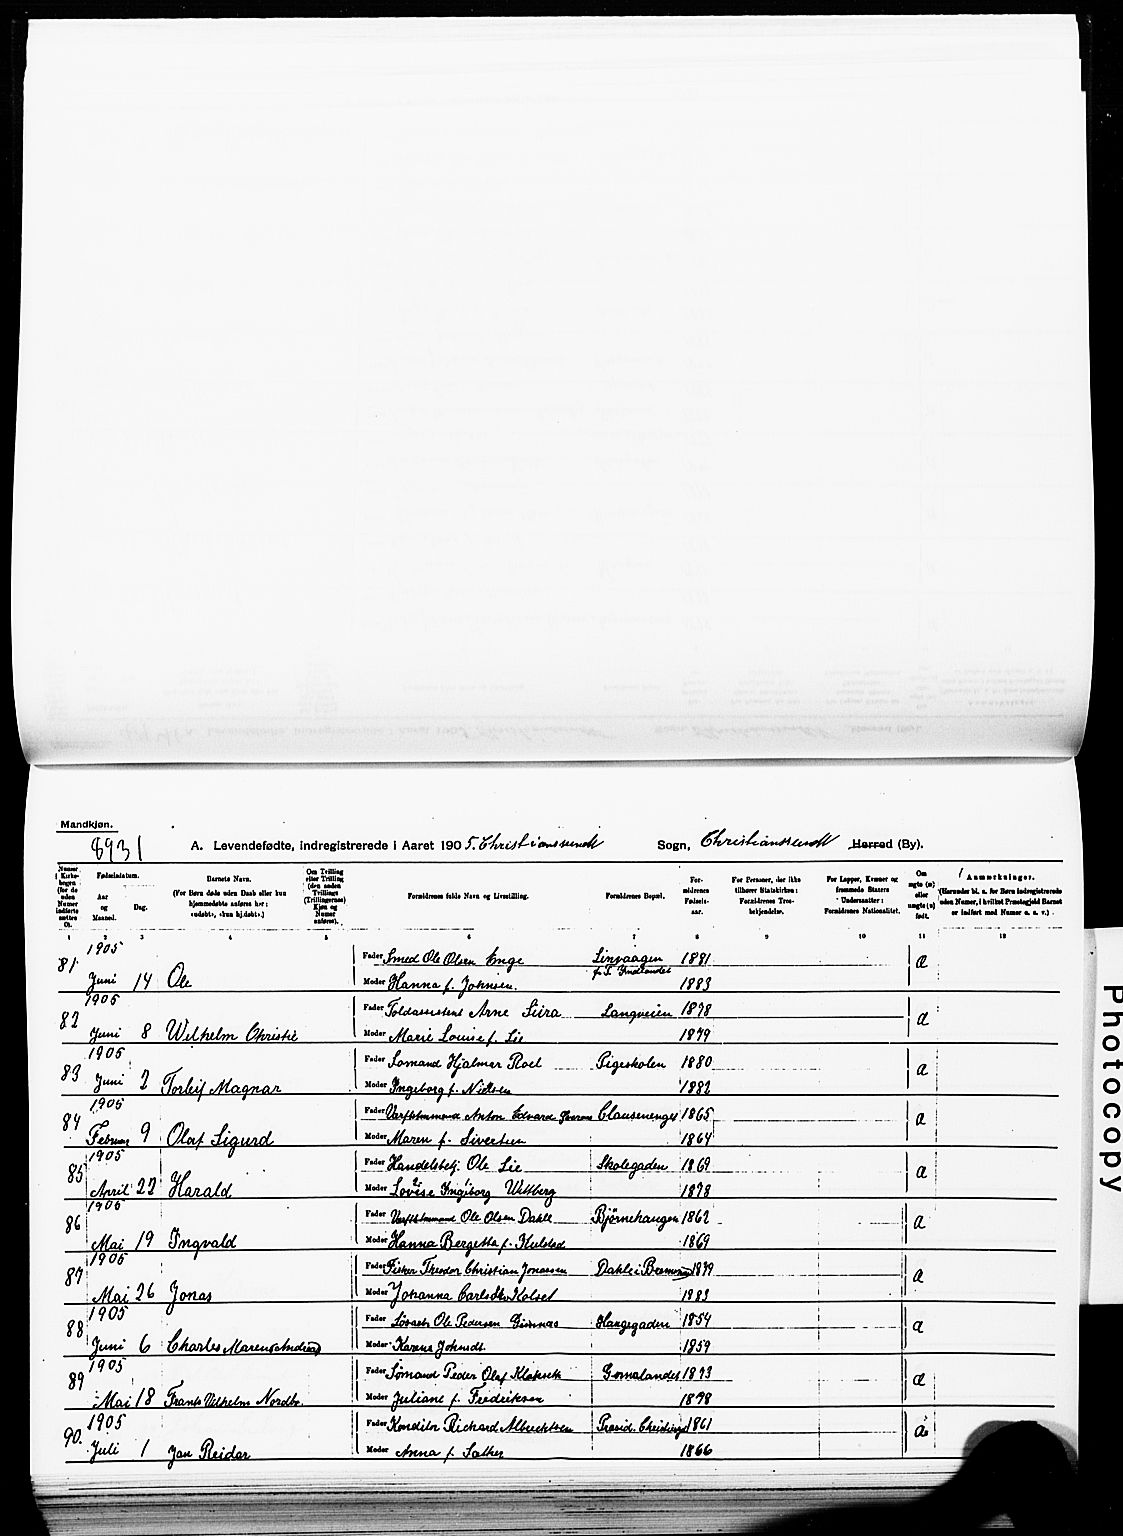 Mandkjøn.
8931
A. Levendefødte, indregistrerede i Aaret 1905. Christianssund Sogn, Christianssund Herred (By).
Fødselsdatum.
Aar og Maaned.
Dag.
Barnets Navn.
(For Børn døde uden Daab eller kun hjemmedøbte anføres her: «udøbt», «kun hj.døbt».)
Forældrenes fulde Navn og Livsstilling.
Forældrenes Bopæl.
Forældrenes Fødselsaar.
For Personer, der ikke tilhører Statskirken: Forældrenes Trosbekjendelse.
For Lapper, Kvæner og fremmede Staters Undersaatter: Forældrenes Nationalitet.
Om ægte (æ) eller uægte (u) født.
Anmerkninger.
1 2 3 4 5 6 7 8 9 10 11 12
81. 1905 Fader Smed Ole Olsen Enge 1881 æ
Juni 14 Ole Moder Hanna f. Johnsen. 1883
82 1905 Fader Toldassistent Arne Langveien 1878 æ
Juni 8 Wilhelm Christie Moder Marie Louise f. Lie 1879
83 1905 Fader Sømand Hjalmar Roel Pigeskolen 1880 æ
Juni 2 Torleif Magnar Moder Ingeborg f. Nielsen 1882
84 1905 Fader Anton Edvard Clausenenget 1865 æ
Februar 9 Olaf Sigurd Moder Maren f. Sivertsen 1864
85 1905 Fader Handelsbetj. Ole Lie Skolegaden 1869 æ
April 22 Harald Moder Lovise Ingeborg Wittberg 1878
86 1905 Fader Ole Olsen Dahle Bjørnehaugen 1862 æ
Mai 19 Ingvald Moder Hanna Bergetta f. Hulstad 1869
87 1905 Fader Fisker Theodor Christian Jonassen Dahle i 1879 æ
Mai 26 Jonas Moder Johanna 1883
88 1905 Fader Ole Pedersen Gimnæs Haugegaden 1854 æ
Juni 6 Charles Moder 1859
89 1905 Fader Sømand Peder Olaf Gomalandet 1873 æ
Mai 18 Frants Vilhelm Nordbo. Moder Juliane f. Fredriksen 1878
90. 1905 Fader Konditor Richard Albrechtsen 1861 æ
Juli 1 Jan Reidar Moder Anna f. Sather 1866
Photocopy